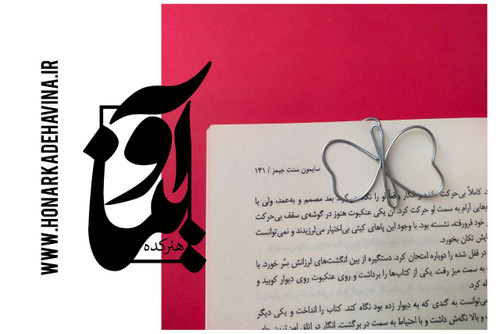 WWW.HONARKADEHAVINA.IR
آوینا
هنرکده
سایمون سنت جیمز / ۱۴۱
کاملاً بی‌حرکت ماند و انگار او را نگاه بعد مصمم و به‌عمد، ولی با
آرام به سمت او حرکت کرد. آن یکی عنکبوت هنوز در گوشه‌ی سقف بی‌حرکت
خود فرورفته، نشسته بود. با وجود این پاهای کیتی بی‌اختیار می‌لرزیدند و نمی‌توانست
تکان بخورد.
در قفل شده را دوباره امتحان کرد. دستگیره از بین انگشت‌های لرزانش سُر خورد. با
به سمت میز رفت. یکی از کتاب‌ها را برداشت و روی عنکبوت روی دیوار کوبید و
له کرد.
به گندی که به دیوار زده بود نگاه کند. کتاب را انداخت و یکی دیگر
و بالا نگهش داشت و با احتیاط به سمت در برگشت. انگار در اتاق